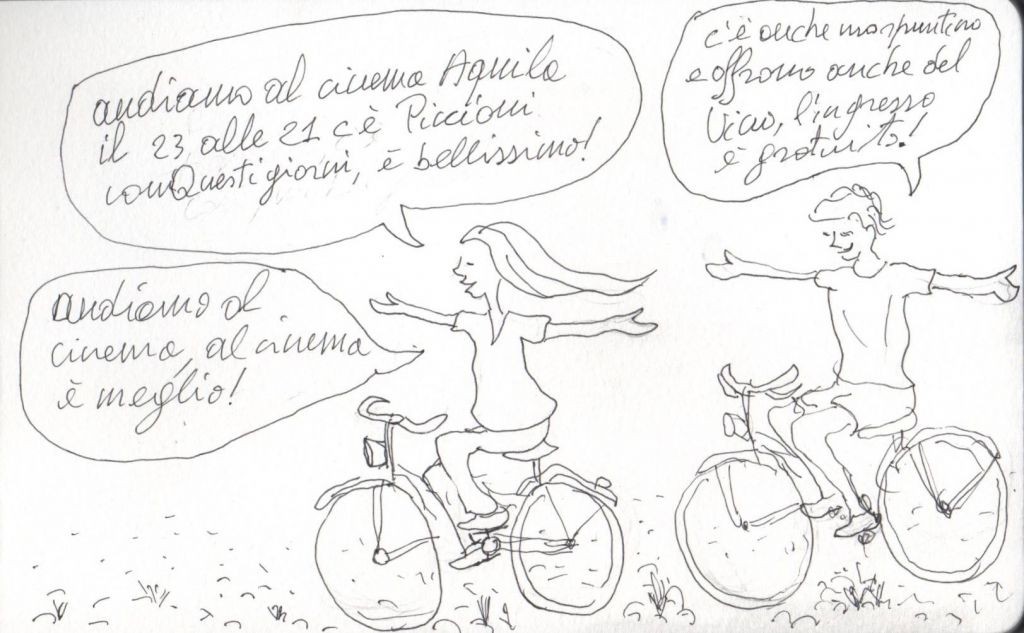 andiamo al cinema Aquila
il 23 alle 21 c'è Piccioni
con Questi giorni, è bellissimo!
andiamo al
cinema, al cinema
è meglio!
c'è anche uno spuntino
e offrono anche del
vino, l'ingresso
è gratuito!